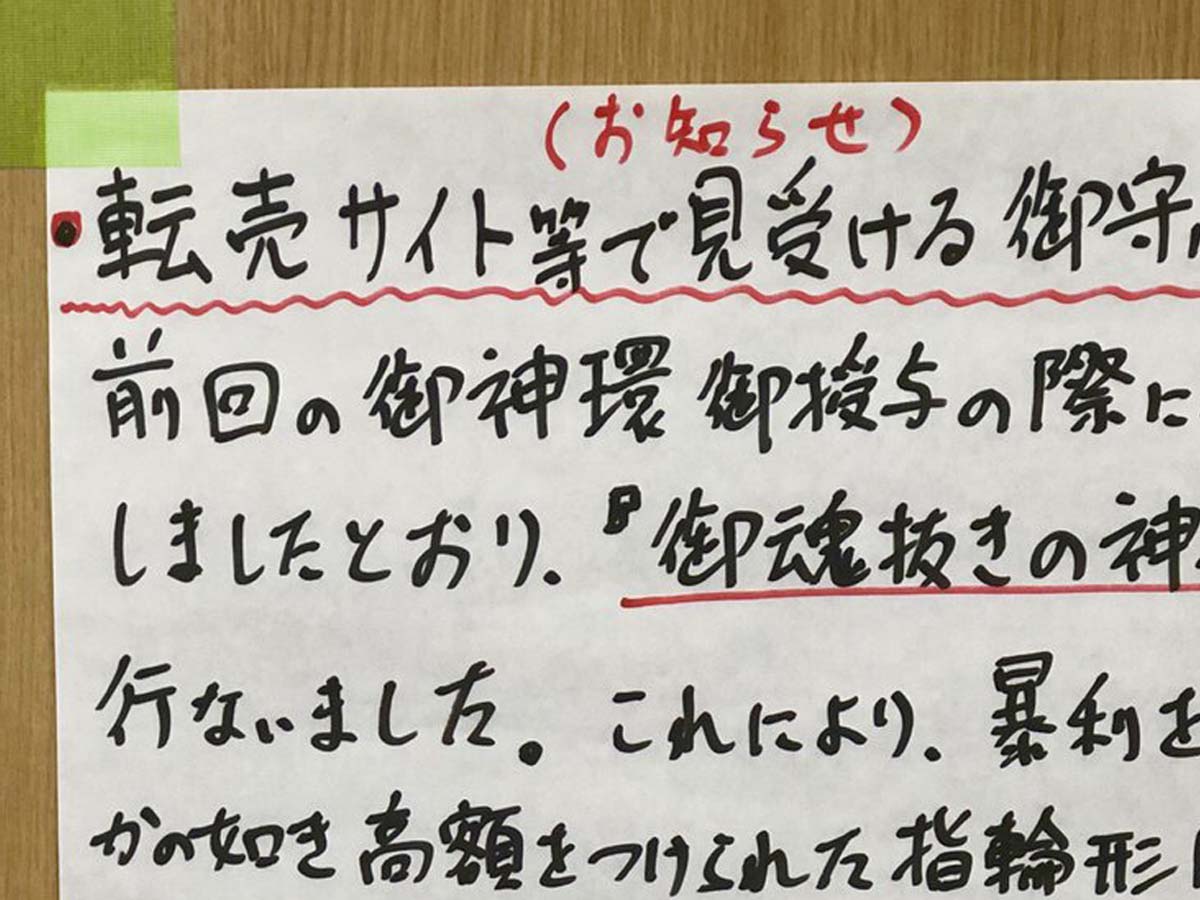 (お知らせ)
・転売サイト等で見受ける御守
前回の御神環御授与の際に
しましたとおり、『御魂抜きの神
行ないました。これにより、暴利を
かの如き高額をつけられた指輪形